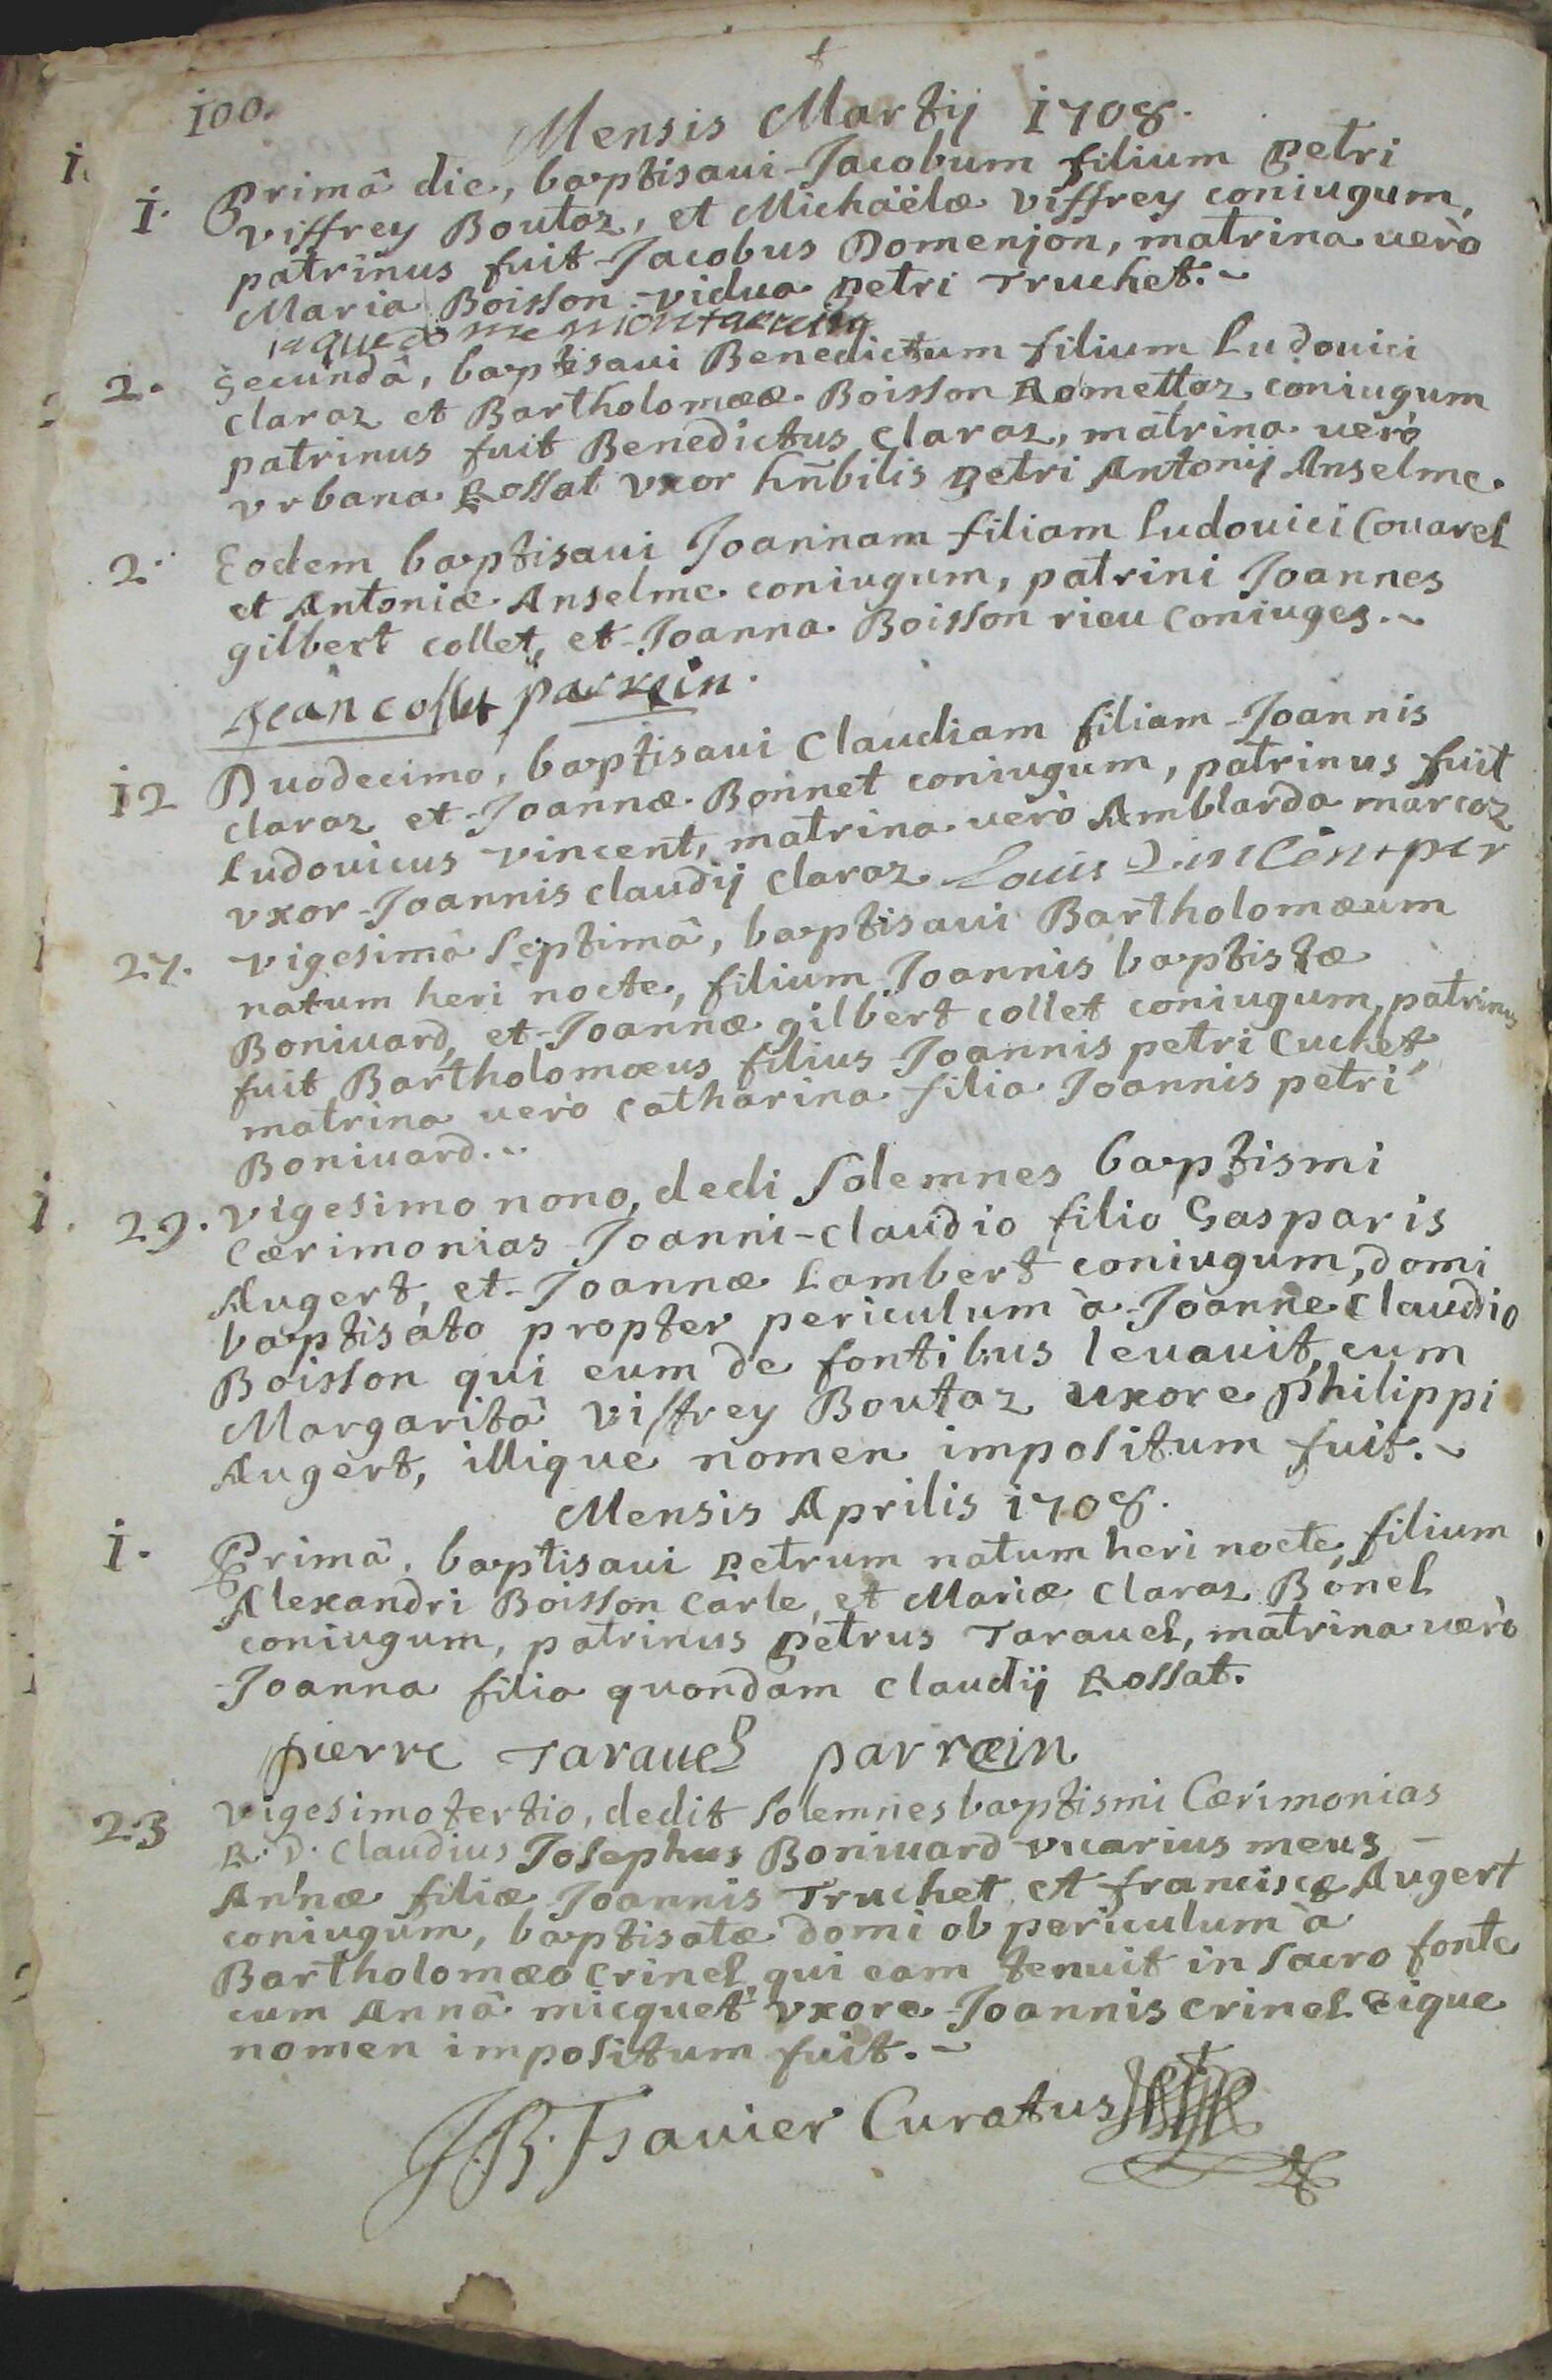 100.
Mensis Martij 1708.
1. Primâ die, baptisaui Jacobum filium Petri
viffrey Boutaz, et Michaëlæ viffrey coniugum,
patrinus fuit Jacobus Domenjon, matrina uerò
Maria Boisson vidua petri Truchet.
2. Secundâ, baptisaui Benedictum filium Ludouici
claraz et Bartholomææ Boisson Romettaz coniugum
patrinus fuit Benedictus claraz, matrina uerò
vrbana Rossat vxor hñbilis petri Antonij Anselme.
2. Eodem baptisaui Joannam filiam Ludouici Couarel
et Antoniæ Anselme coniugum, patrini Joannes
gilbert collet, et Joanna Boisson rieu coniuges.
Jean collet parrein.
12 Duodecimo, baptisaui claudiam filiam Joannis
claraz et Joannæ Bonnet coniugum, patrinus fuit
Ludouicus vincent, matrina uerò Amblarda marcoz
vxor Joannis claudij claraz Louis vincent par
27. vigesimâ septimâ, baptisaui Bartholomæum
natum heri nocte, filium Joannis baptistæ
Boniuard, et Joannæ gilbert collet coniugum, patrinus
fuit Bartholomæus filius Joannis petri Cuchet,
matrina uerò catharina filia Joannis petri
Boniuard...
29. vigesimo nono, dedi solemnes baptismi
cærimonias Joanni-claudio filio Gasparis
Augert, et Joannæ Lambert coniugum, domi
baptisato propter periculum à Joanne claudio
Boisson qui eum de fontibus leuauit, cum
Margaritâ viffrey Boutaz uxore philippi
Augert, illique nomen impositum fuit.
Mensis Aprilis 1708.
1. Primâ, baptisaui petrum natum heri nocte, filium
Alexandri Boisson carle, et Mariæ claraz Bonel
coniugum, patrinus petrus Tarauel, matrina uerò
Joanna filia quondam claudij Rossat.
pierre Tarauel parrein
23 vigesimo tertio, dedit solemnes baptismi Cærimonias
R. D. claudius Josephus Boniuard vicarius meus
Annæ filiæ Joannis Truchet et franciscæ Augert
coniugum, baptisatæ domi ob periculum à
Bartholomæo crinel, qui eam tenuit in sacro fonte
cum Annâ micquet vxore Joannis crinel eique
nomen impositum fuit.
J. B. Curatus